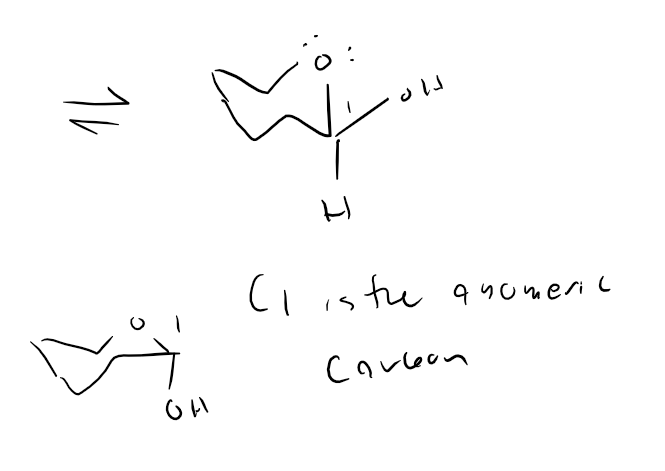 O
1
OH
H
C1 is the anomeric
O 1
Carbon
OH